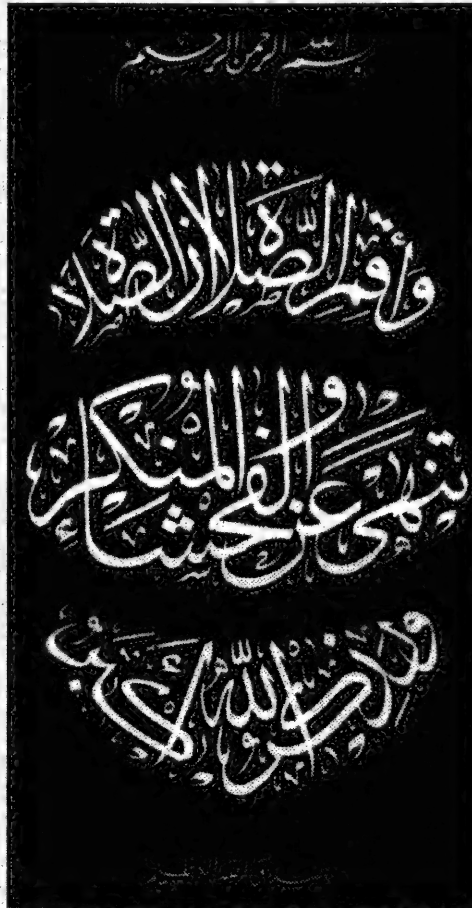 بسم الله الرحمن الرحيم
وأقم الصلاة إن الصلاة
تنهى عن الفحشاء والمنكر
ولذكر الله أكبر